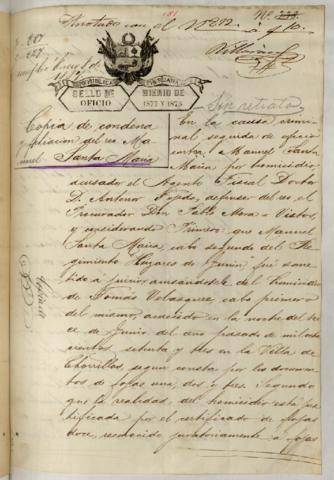 Anotado con el Nº 292
REPUBLICA PERUANA
SELLO DE OFICIO
BIENIO DE 1877 Y 1878
Sin retrato
Copia de condena
y filiacion del reo Ma-
nuel Santa Maria
En la causa crimi-
nal seguida de oficio
contra Manuel Santa
Maria por homicidio
acusador el Agente Fiscal Doctor
D. Antenor Tejedo, defensor del reo el
Procurador Don Pablo Mora = Vistos,
y considerando Primero: que Manuel
Santa Maria, cabo segundo del Re-
gimiento Húzares de Junin, fué some-
tido á juicio, acusandosele del homicidio
de Tomás Velasquez, cabo primero
del mismo, acaecido en la noche del
ce de Junio del año pasado de mil ocho-
cientos, setenta y tres en la Villa de
Chorrillos, segun consta por los documen-
tos de fojas una, dos y tres. Segundo
que la realidad del homicidio está jus-
tificada por el certificado de fojas
doce, reconocido juratoriamente á fojas